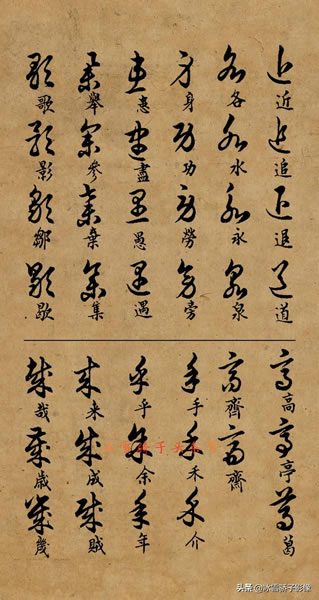 近追退道
各水永泉
身功勞旁
盡愚遇
舉參棄集
歌影鄒歇
高亭葛
齊齋
手禾介
乎余年
来成賊
哉歲幾
头条 @冰雪骄子影像